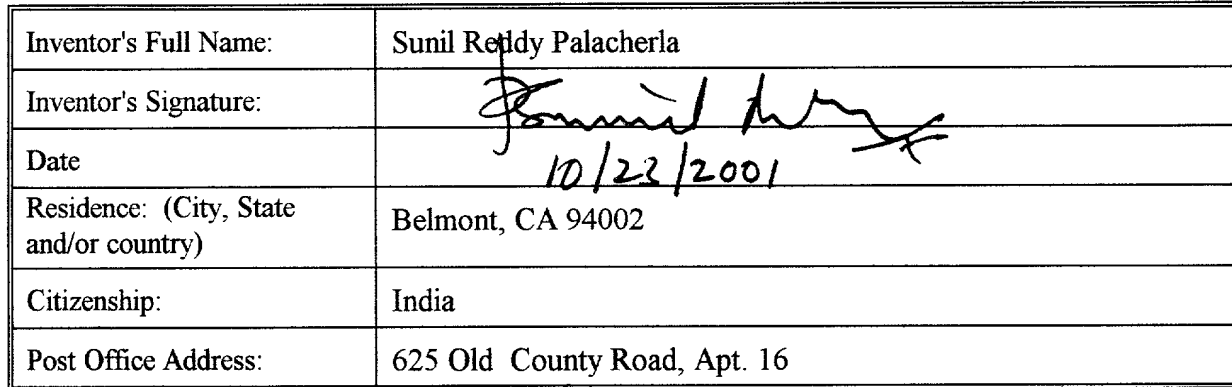 Inventor's Full Name: Sunil Reddy Palacherla
Inventor's Signature:
Date 10/23/2001
Residence: (City, State
and/or country) Belmont, CA 94002
Citizenship: India
Post Office Address: 625 Old County Road, Apt. 16